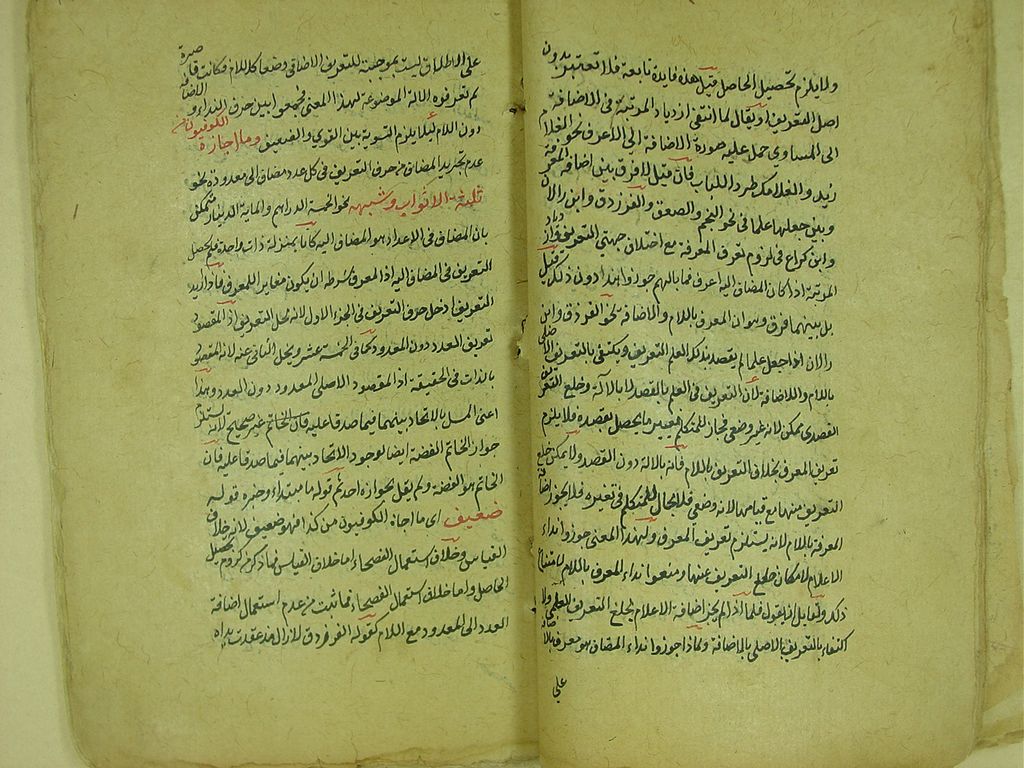 ولا يلزم تحصيل الحاصل قيل هذه فايدة تابعة فلا تعتبر بدون
اصل التعريف او يقال لما انتفى ازدياد المرتبة في الاضافة
الى المساوي حمل عليه صورة الاضافة الى الاعرف نحو الغلام
زيد والغلامك طردا للباب فان قيل لا فرق بين اضافة المعرفة
وبين جعلها علما في نحو النجم والصعق والفرزدق وابن رالان
وابن كراع في لزوم تعرف المعرفة مع اختلاف جهتي التعريف وازدياد
المرتبة اذا كان المضاف اليه اعرف فما بالهم جوزوا هذا دون ذلك قيل
بل بينهما فرق وهو ان المعرف باللام والاضافة نحو الفرزدق وابن
رالان اذا جعل علما لم يقصد بذلك العلم التعريف ويكتفي بالتعريف الاصلي
باللام والاضافة لان التعريف في العلم بالقصد لا بالآلة وخلع التعريف
القصدي ممكن لانه غير وضعي فجاز للمتكلم تغيير ما يحصل بقصده فلا يلزم
تعريف المعرف بخلاف التعريف باللام فانه بالآلة دون القصد ولا يمكن خلع
التعريف منها مع قيامها لانه وضعي فلا مجال للمتكلم في تغييره فلا يجوز اضافة
المعرفة باللام لانه يستلزم تعريف المعرف ولهذا المعنى جوزوا نداء
الاعلام لامكان خلع التعريف عنها ومنعوا نداء المعرف باللام لامتناع
ذلك ولقايل ان يقول فلما ذا لم يجز اضافة الاعلام بخلع التعريف العلمي ولا
اكتفاء بالتعريف الاصلي بالاضافة ولماذا جوزوا نداء المضاف هو معرف بالاضافة
على
على الاطلاق ليست بموجبة للتعريف الاضافي وضعا كاللام فكانت قاصرة
لم تعرفوه الآلة الموضوعة لهذا المعنى فجمعوا بين حرف النداء والاضافة
دون اللام ليلا يلزم التسوية بين القوي والضعيف وما اجازه الكوفيون من
عدم تجريد المضاف من حرف التعريف في كل عدد مضاف الى معدوده نحو
ثلثة الاثواب وشبهه نحو الخمسة الدراهم والماية الدينار متمسكين
بان المضاف في الاعداد هو المضاف اليه كانا بمنزلة ذات واحدة فلم يحصل
التعريف في المضاف اليه اذ المعرف شرطه ان يكون مغايرا للمعرف فاذا اريد
التعريف ادخل حرف التعريف في الجزء الاول لانه محل التعريف اذ المقصود
تعريف العدد دون المعدود كما في الخمسة عشر ويخل الثاني عنه لانه المقصود
بالذات في الحقيقة اذ المقصود الاصلي المعدود دون العدد وهذا
اعنى التمسك بالاتحاد بينهما فيما صدقا عليه فان الخاتم غير صحيح لانه استلزم
جواز الخاتم الفضة ايضا لوجود الاتحاد بينهما فيما صدقا عليه فان
الخاتم هو الفضة ولم يقل بجوازه احد ثم قوله ما مبتداء وخبره قوله
ضعيف اي ما اجازه الكوفيون من كذا فهو ضعيف لانه خلاف
القياس وخلاف استعمال الفصحاء اما خلاف القياس فما ذكر من لزوم تحصيل
الحاصل واما خلاف استعمال الفصحاء فما ثبت من عدم استعمال اضافة
العدد الى المعدود مع اللام كقوله الفرزدق لا زال مذ عقدت يداه